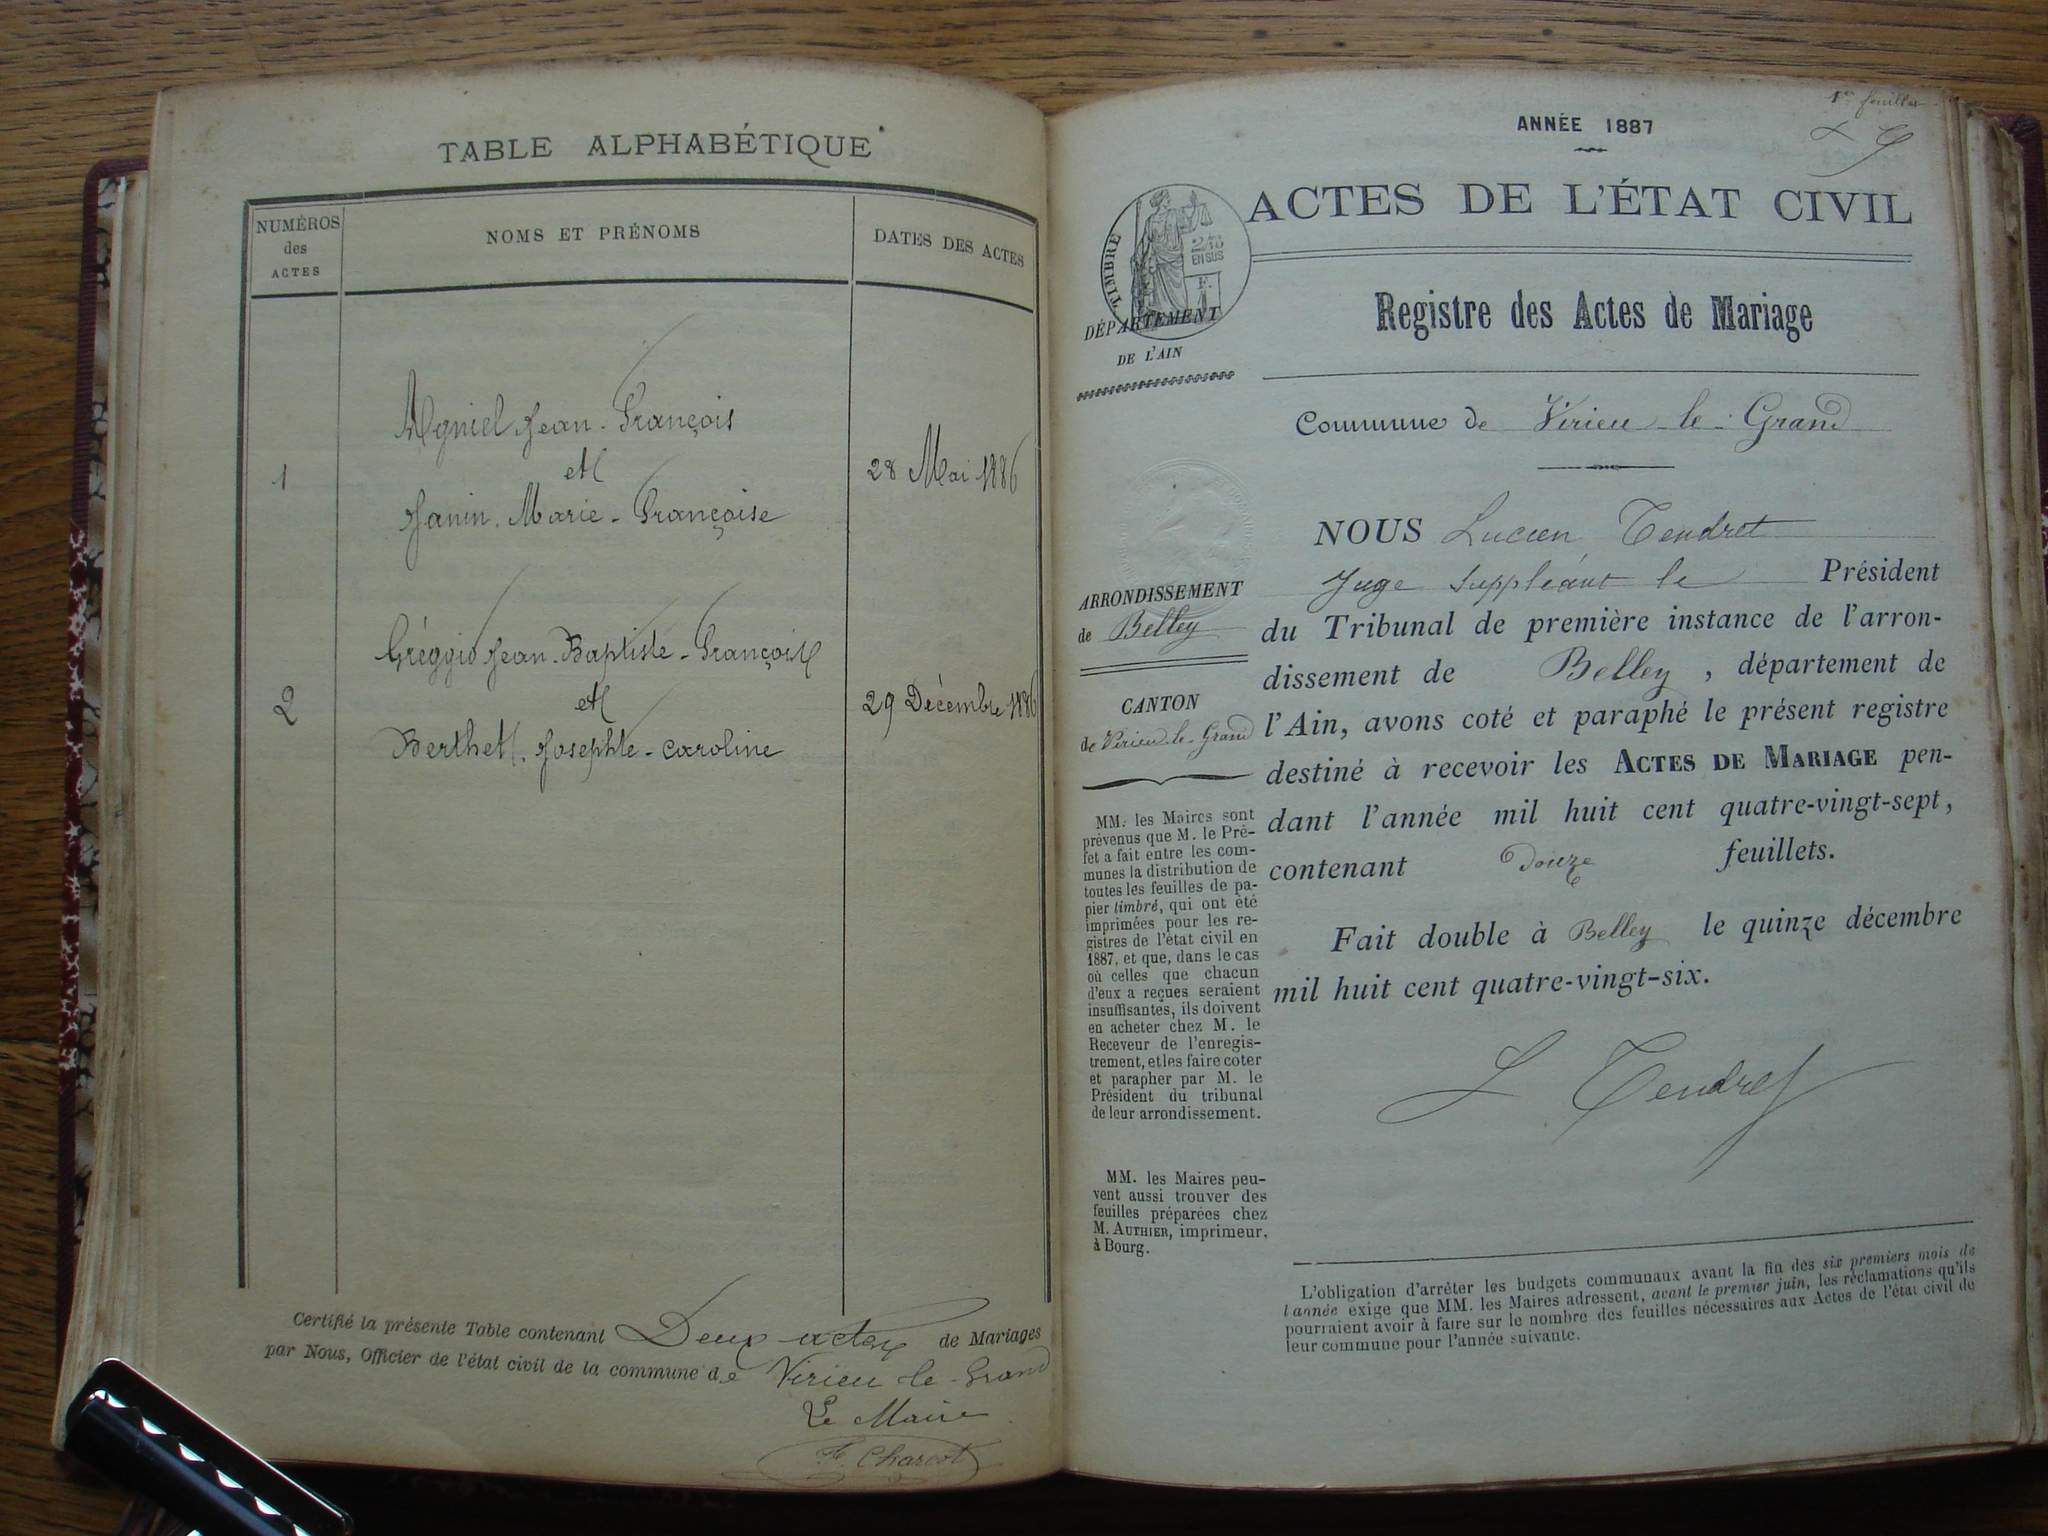 TABLE ALPHABÉTIQUE
NUMÉROS
des
ACTES
NOMS ET PRÉNOMS
DATES DES ACTES
1
Agniel Jean-François
et
Janin Marie-Françoise
28 Mai 1886
2
Gréggio Jean-Baptiste-François
et
Berthet Josephte-Caroline
29 Décembre 1886
Certifié la présente Table contenant Deux actes de Mariages
par Nous, Officier de l'état civil de la commune de Virieu-le-Grand
Le Maire
F. Charcot
1er feuillet
ANNÉE 1887
ACTES DE L'ÉTAT CIVIL
TIMBRE
EN SUS
DÉPARTEMENT
DE L'AIN
Registre des Actes de Mariage
Commune de Virieu-le-Grand
ARRONDISSEMENT
de Belley
CANTON
de Virieu-le-Grand
NOUS Lucien Tendret
Juge suppléant le Président
du Tribunal de première instance de l'arron-
dissement de Belley, département de
l'Ain, avons coté et paraphé le présent registre
destiné à recevoir les ACTES DE MARIAGE pen-
dant l'année mil huit cent quatre-vingt-sept,
contenant Douze feuillets.
Fait double à Belley le quinze décembre
mil huit cent quatre-vingt-six.
L Tendret
MM. les Maires sont
prévenus que M. le Pré-
fet a fait entre les com-
munes la distribution de
toutes les feuilles de pa-
pier timbré, qui ont été
imprimées pour les re-
gistres de l'état civil en
1887, et que, dans le cas
où celles que chacun
d'eux a reçues seraient
insuffisantes, ils doivent
en acheter chez M. le
Receveur de l'enregis-
trement, et les faire coter
et parapher par M. le
Président du tribunal
de leur arrondissement.
MM. les Maires peu-
vent aussi trouver des
feuilles préparées chez
M. AUTHIER, imprimeur,
à Bourg.
L'obligation d'arrêter les budgets communaux avant la fin des six premiers mois de
l'année exige que MM. les Maires adressent, avant le premier juin, les réclamations qu'ils
pourraient avoir à faire sur le nombre des feuilles nécessaires aux Actes de l'état civil de
leur commune pour l'année suivante.